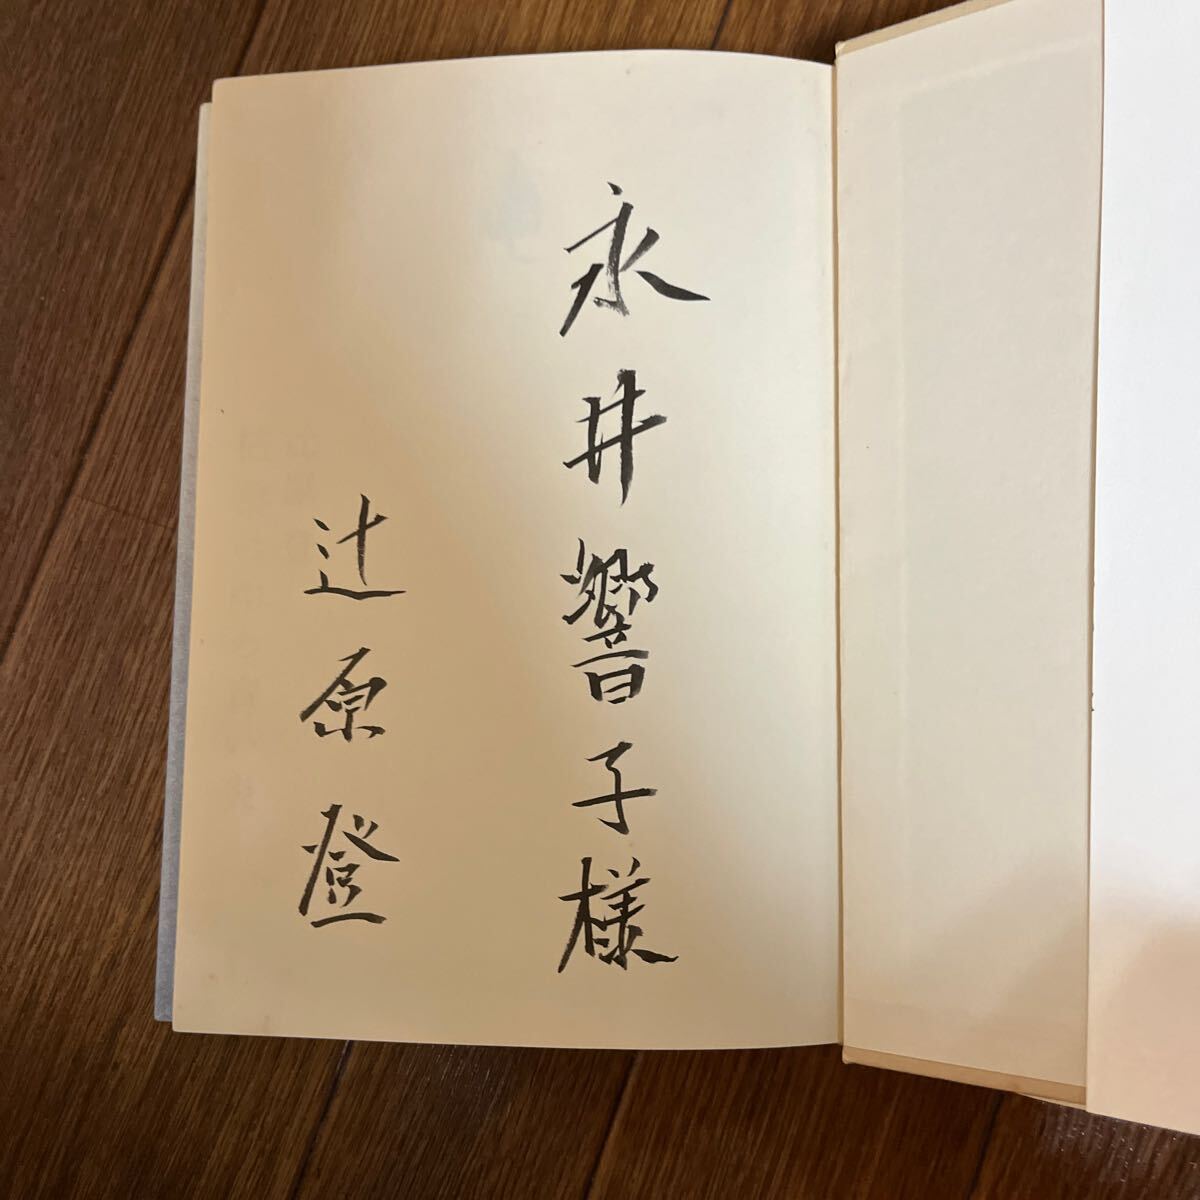 永井響子様
辻原登